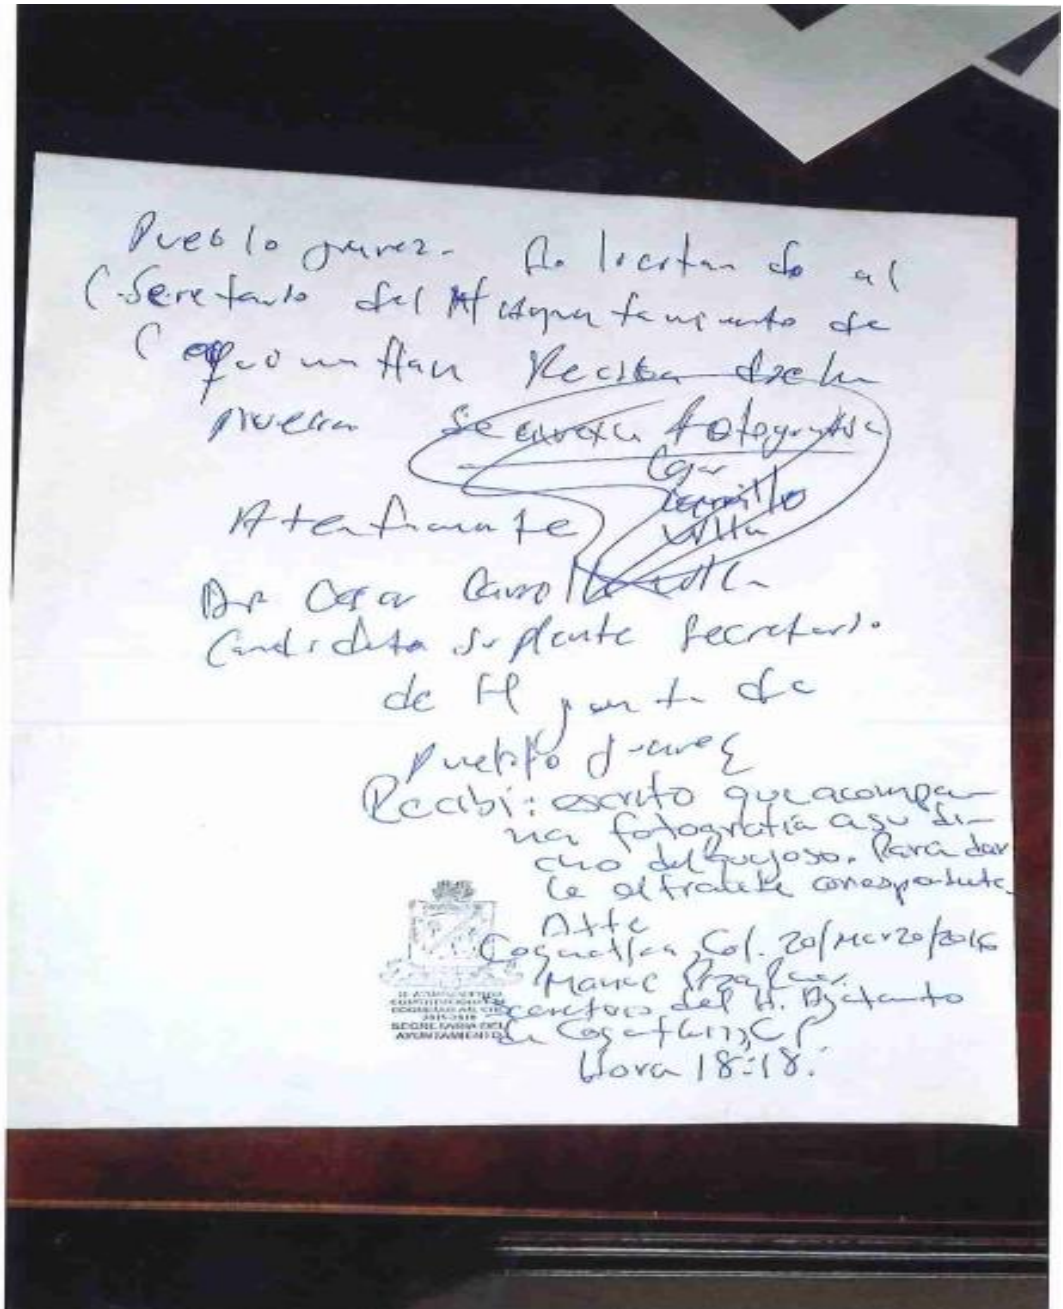 Pueblo Juarez. So licitan do al
Secretario del H Ayuntamiento de
Coquimatlan Reciba dicha
prueba Se anexa fotografia
Cesar
Carrillo
Villa
Atentamente
Dr Cesar Carrillo Villa
Candidato suplente Secretario
de la junta de
Pueblo Juarez
Recibi: escrito que acompa-
ña fotografia a su di-
cho del quejoso. Para dar
le el tramite correspondiente
Atte
Coquimatlan, Col. 20/Marzo/2016
Manuel
Secretario del H. Ayuntamiento
de Coquimatlan, Col
Hora 18:18.
H. AYUNTAMIENTO
CONSTITUCIONAL DE
COQUIMATLAN, COL.
2015-2018
SECRETARIA DEL
AYUNTAMIENTO